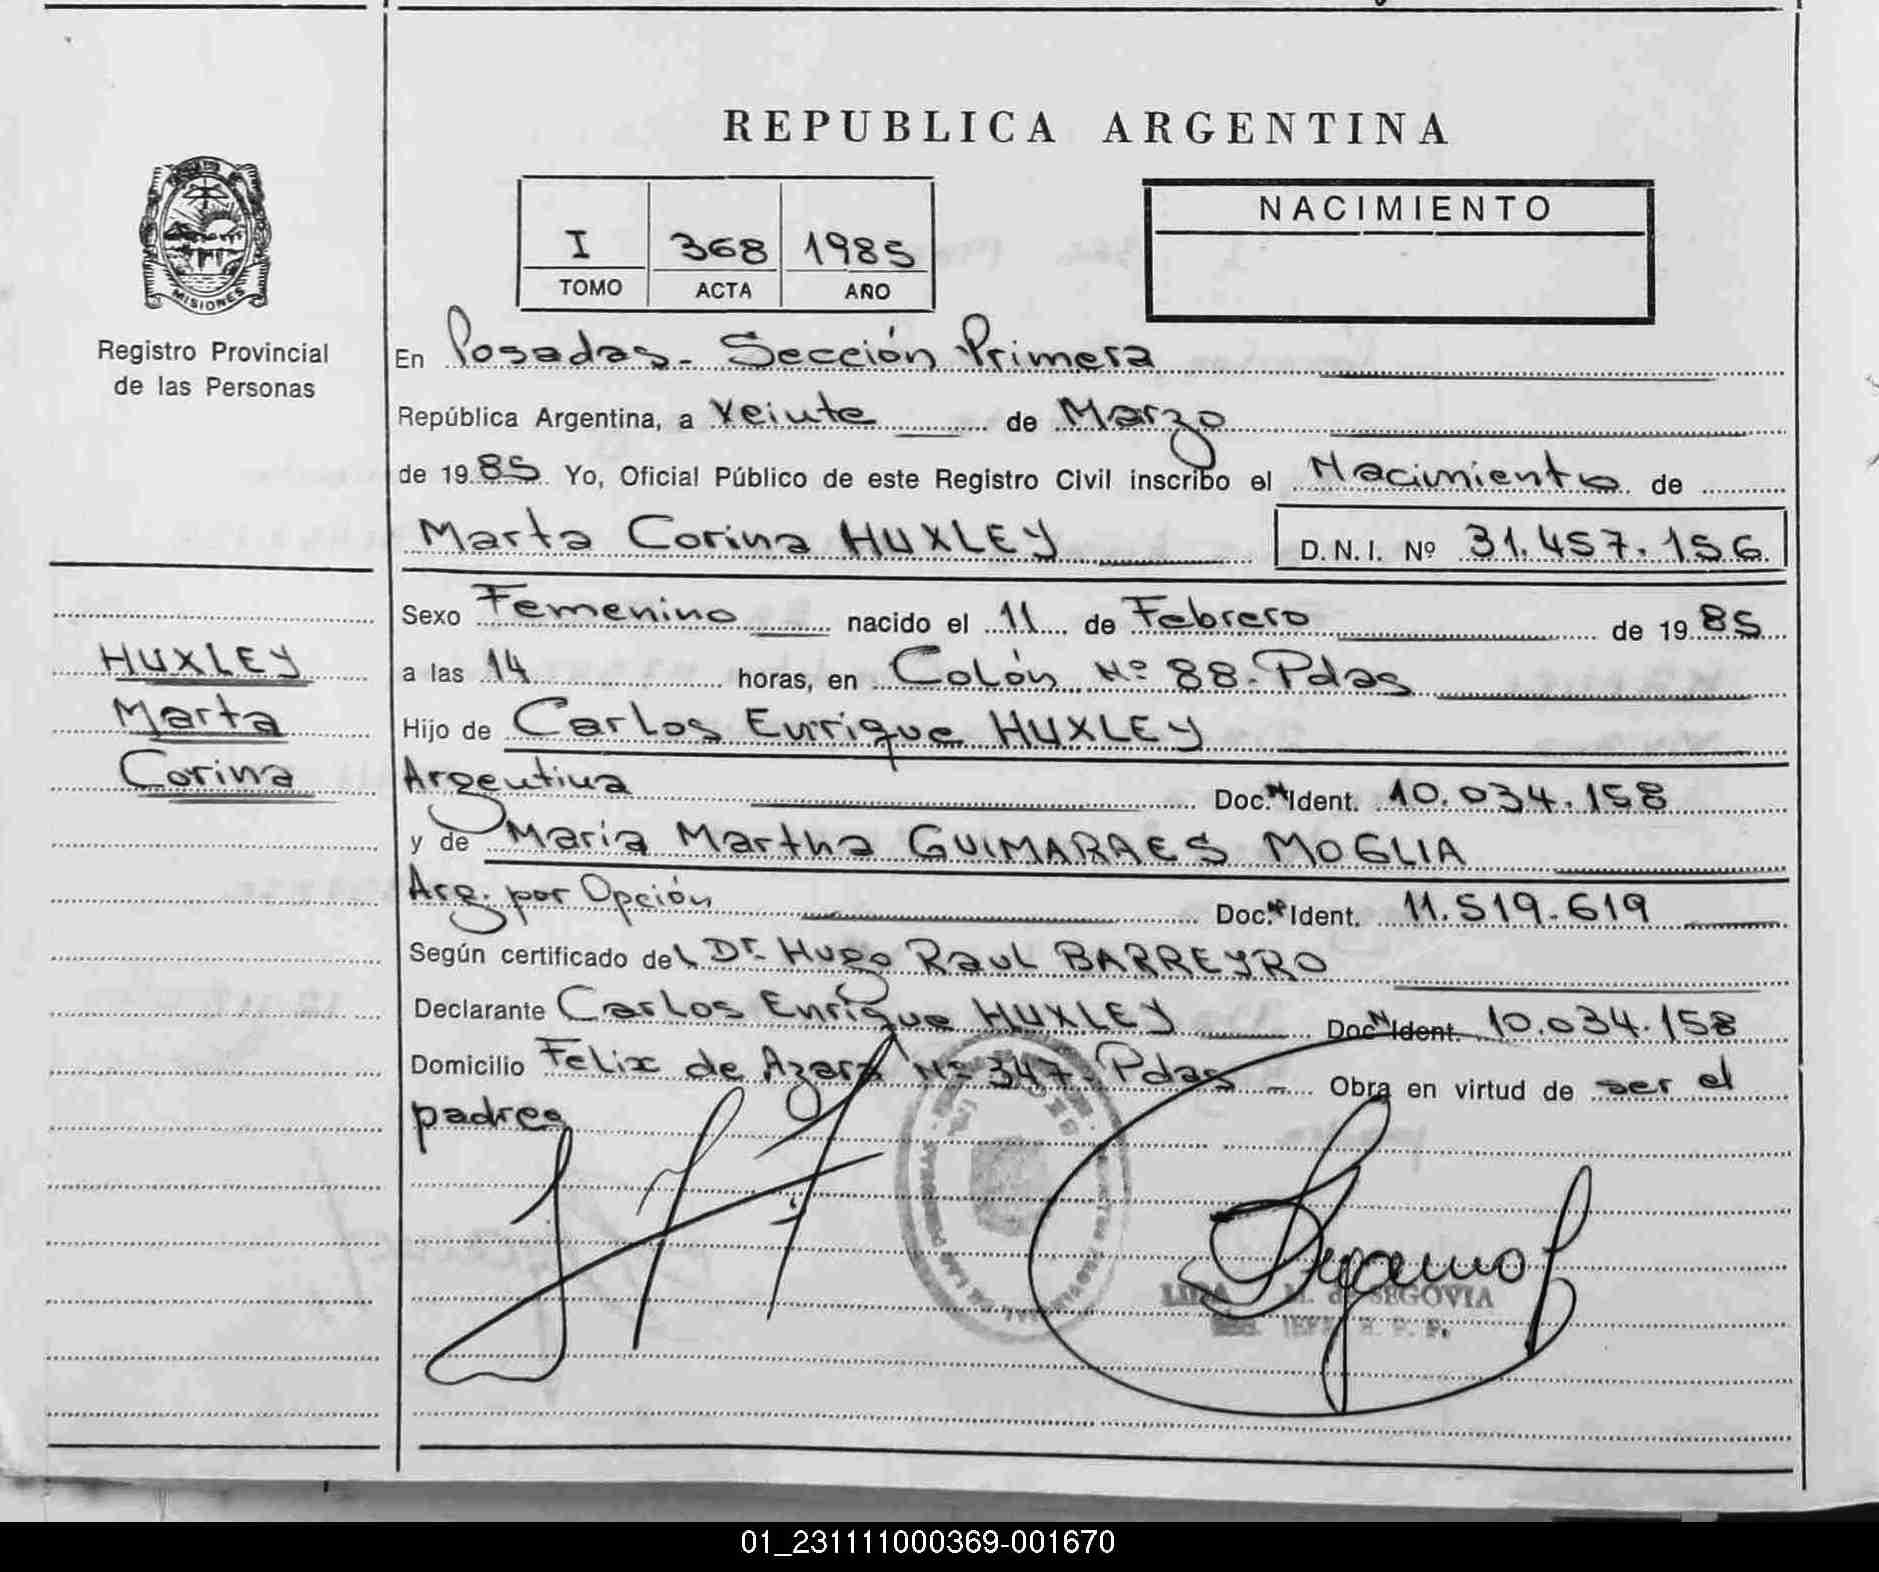 REPUBLICA ARGENTINA
MISIONES
Registro Provincial
de las Personas
I 368 1985
TOMO ACTA AÑO
NACIMIENTO
En Posadas - Sección Primera
República Argentina, a Veinte de Marzo
de 1985 Yo, Oficial Público de este Registro Civil inscribo el Nacimiento de
Marta Corina HUXLEY D.N.I. Nº 31.457.156
Sexo Femenino nacido el 11 de Febrero de 1985
a las 14 horas, en Colón Nº 88. Pdas
Hijo de Carlos Enrique HUXLEY
Argentina Doc. Nº Ident. 10.034.158
y de María Martha GUIMARAES MOGLIA
Arg. por Opción Doc. Nº Ident. 11.519.619
Según certificado del Dr. Hugo Raul BARREYRO
Declarante Carlos Enrique HUXLEY Doc. Nº Ident. 10.034.158
Domicilio Felix de Azara Nº 347. Pdas - Obra en virtud de ser el
padre
HUXLEY
Marta
Corina
M. de SEGOVIA
01_231111000369-001670